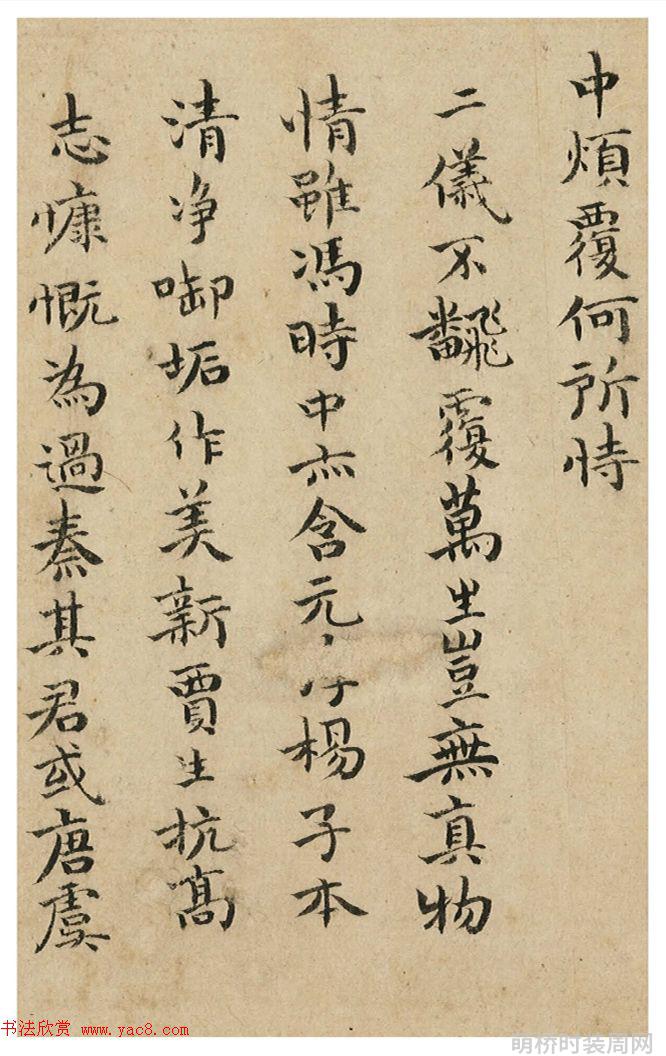 中煩覆何所恃
二儀不飜覆萬生豈無真物
情雖馮時中亦含元楊子本
清净啣垢作美新賈生抗高
志慷慨為過秦其君或唐虞
书法欣赏 www.yac8.com
明桥时装周网